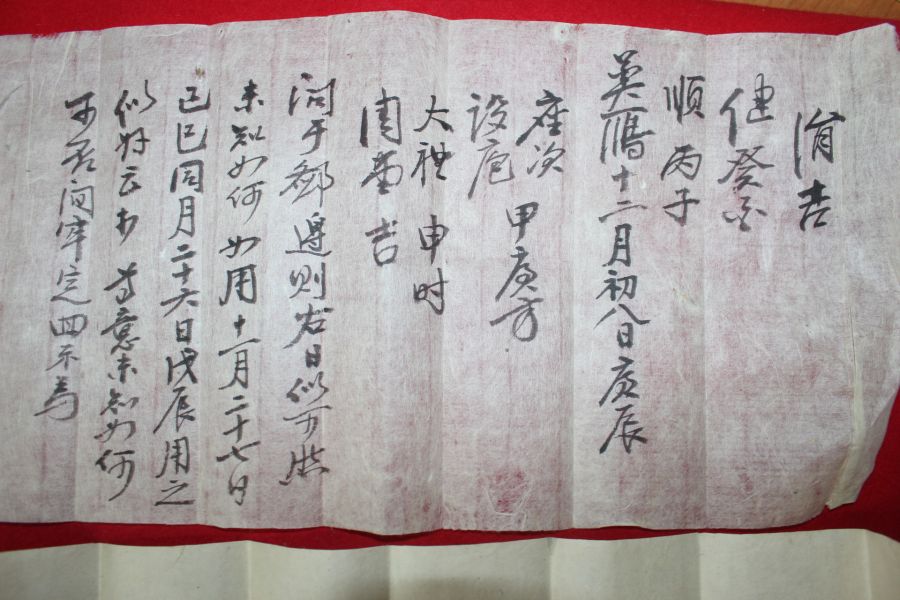 涓吉
健癸
順 丙子
奠鴈十二月初八日庚辰
座次
設庖 甲庚方
大禮 申时
周堂 吉
于鄉邊則日似可然
未知如何 如用十一月二十七日
己巳同月二十六日戊辰用之
似好云 尊意未知如何
可否间牢定回示焉